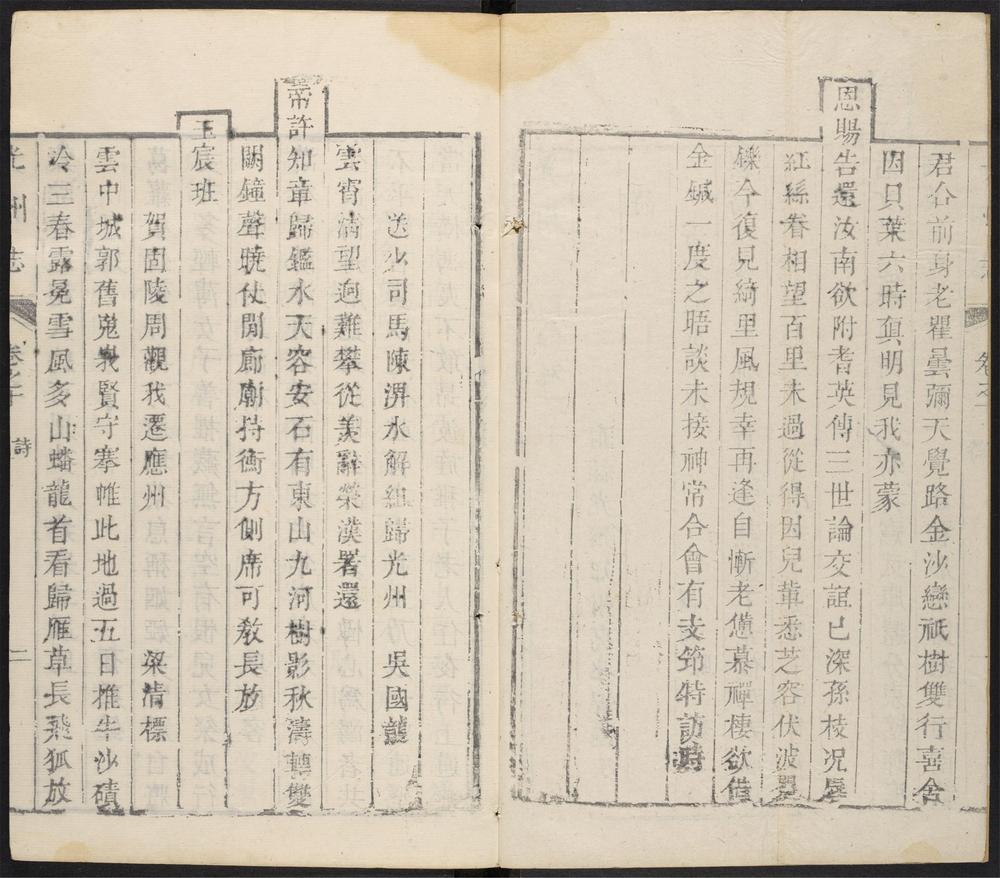 君公前身老瞿曇彌天覺路金沙戀祇樹雙行喜舍
因貝葉六時眞明見我亦蒙
恩賜告還汝南欲附耆英傳三世論交誼已深孫枝况辱
紅絲眷相望百里未過從得因兒輩悉芝容伏波矍
鑠今復見綺里風規幸再逢自慚老憊慕禪棲欲借
金鍼一度之晤談未接神常合會有支筇特訪時
送少司馬陳淠水解組歸光州 吳國龍
雲霄淸望逈難攀從羨辭榮漢署還
帝許知章歸鑑水天容安石有東山九河樹影秋濤轉雙
闕鐘聲曉仗閒廊廟持衡方側席可敎長放
玉宸班
賀固陵周觀我遷應州 梁清標
雲中城郭舊嵬峩賢守搴帷此地過五日推牛沙磧
冷三春露冕雪風多山蟠龍首看歸雁草長飛狐放
光州志
卷之十
詩
二